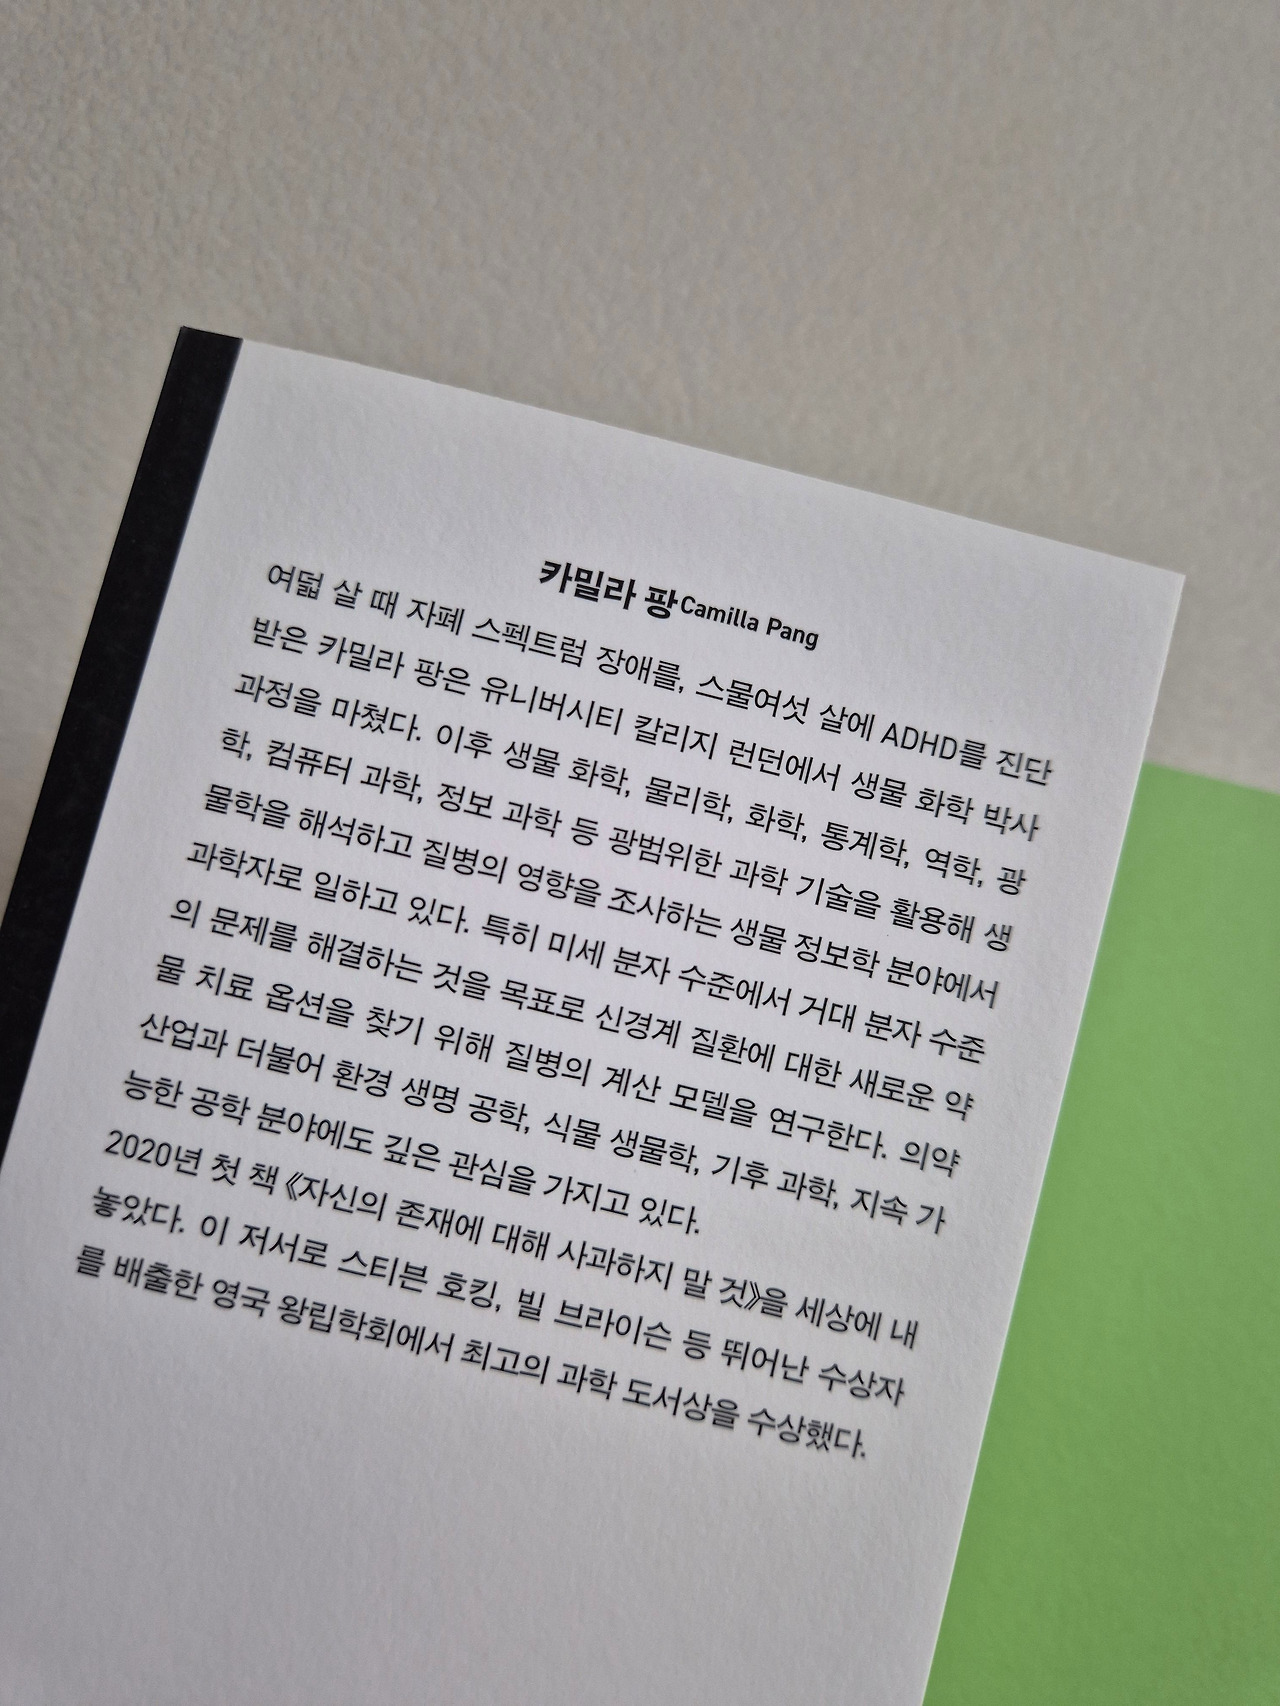 카밀라 팡 Camilla Pang
여덟 살 때 자폐 스펙트럼 장애를, 스물여섯 살에 ADHD를 진단
받은 카밀라 팡은 유니버시티 칼리지 런던에서 생물 화학 박사
과정을 마쳤다. 이후 생물 화학, 물리학, 화학, 통계학, 역학, 광
학, 컴퓨터 과학, 정보 과학 등 광범위한 과학 기술을 활용해 생
물학을 해석하고 질병의 영향을 조사하는 생물 정보학 분야에서
과학자로 일하고 있다. 특히 미세 분자 수준에서 거대 분자 수준
의 문제를 해결하는 것을 목표로 신경계 질환에 대한 새로운 약
물 치료 옵션을 찾기 위해 질병의 계산 모델을 연구한다. 의약
산업과 더불어 환경 생명 공학, 식물 생물학, 기후 과학, 지속 가
능한 공학 분야에도 깊은 관심을 가지고 있다.
2020년 첫 책 《자신의 존재에 대해 사과하지 말 것》을 세상에 내
놓았다. 이 저서로 스티븐 호킹, 빌 브라이슨 등 뛰어난 수상자
를 배출한 영국 왕립학회에서 최고의 과학 도서상을 수상했다.